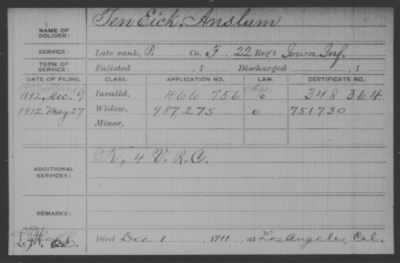 NAME OF SOLDIER: Ten Eick, Anslum
SERVICE: Late rank, P Co. F, 22 Reg't Iowa Inf.
TERM OF SERVICE: Enlisted , 1 Discharged , 1
DATE OF FILING. CLASS. APPLICATION NO. LAW. CERTIFICATE NO.
1882, Dec. 9 Invalid, 466 756 348 364
1912 May 27 Widow, 987 275 0 751730
Minor,
ADDITIONAL SERVICES: K, 4 V.R.C.
REMARKS:
Died Dec. 1, 1911, at Los Angeles, Cal.